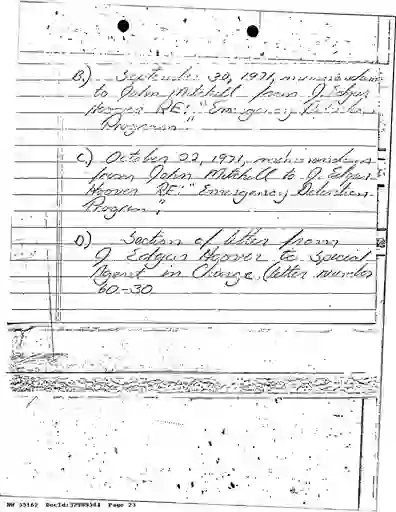 B.) September 30, 1971, memorandum
to John Mitchell from J. Edgar
Hoover RE: "Emergency Detention
Program."
C.) October 22, 1971, memorandum
from John Mitchell to J. Edgar
Hoover RE: "Emergency Detention
Program."
D) Section of letter from
J. Edgar Hoover to Special
Agent in Charge (letter number
60-30
NW 55162 DocId:32989584 Page 23